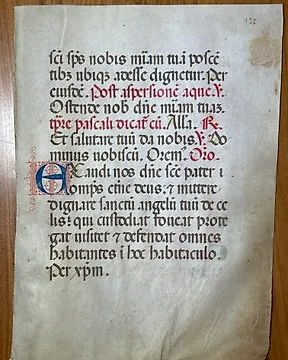 sci sps nobis miam tuā poscē
tibꝫ ubiqꝫ adesse dignetur. Per
eiusdē. Post aspersionē aque ℣.
Ostende nob dne miam tuaꝫ.
tpre pascali dicat cū. Alla. ℟.
Et salutare tuū da nobis. ℣. Do
minus nobiscū. Orem⁹. Oro.
Exaudi nos dne sce pater i
omps etne deus. et mittere
dignare sanctū angelū tuū de ce
lis: qui custodiat foueat prote
gat uisitet et defendat omnes
habitantes i hoc habitaculo.
Per xpm.